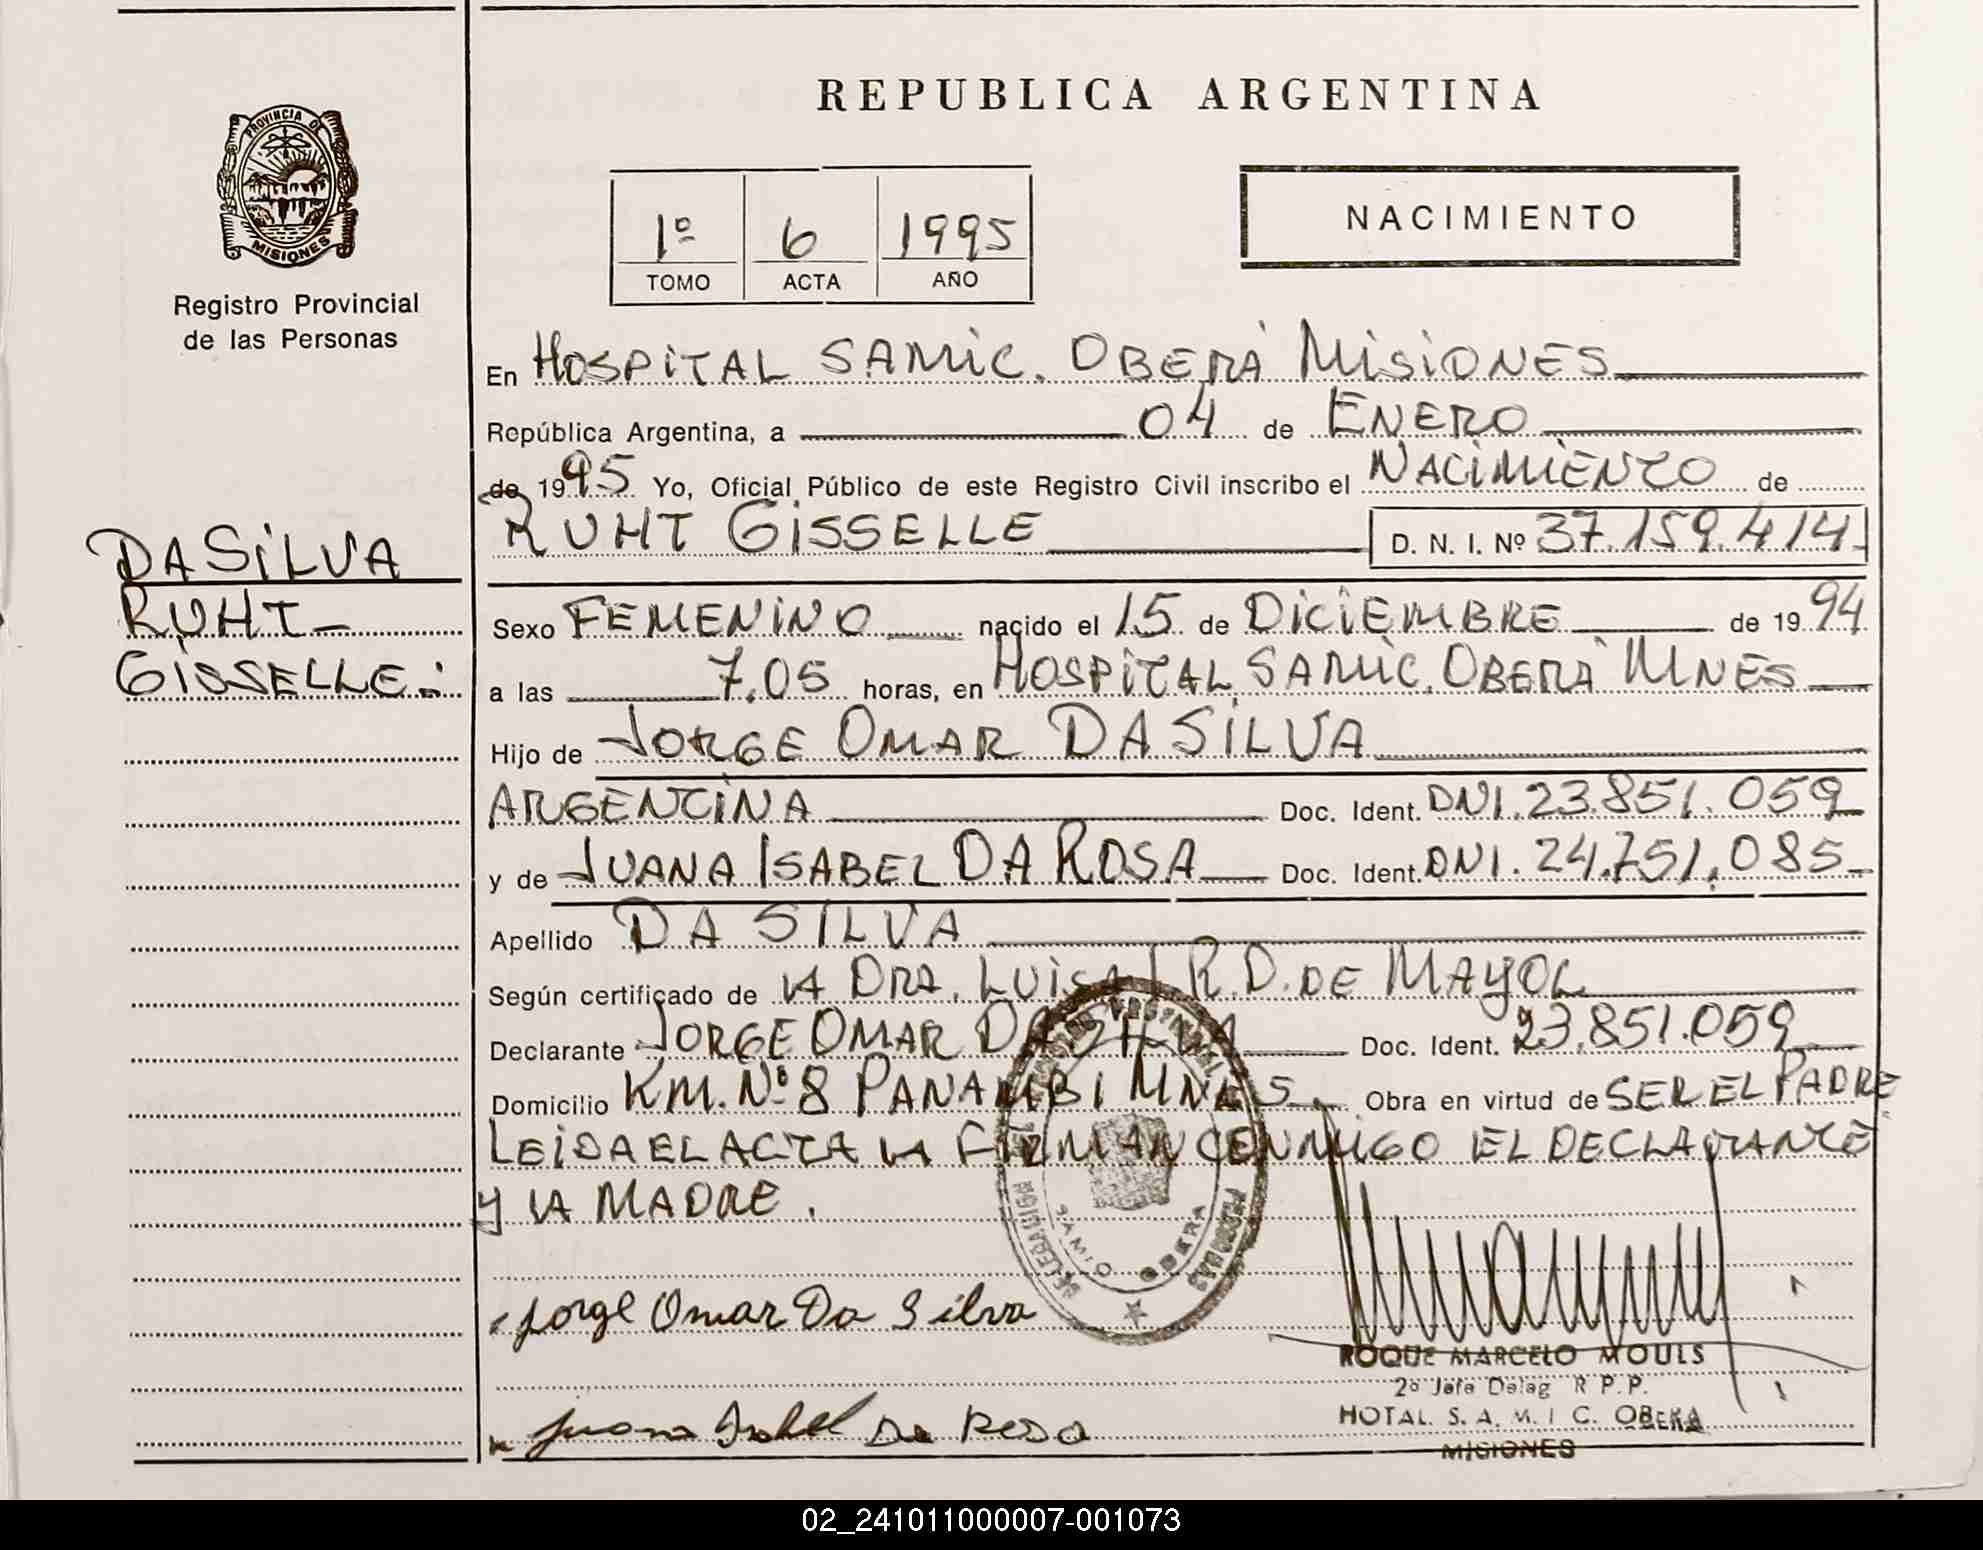 REPUBLICA ARGENTINA
PROVINCIA DE
MISIONES
Registro Provincial
de las Personas
1º 6 1995
TOMO ACTA AÑO
NACIMIENTO
En HOSPITAL SAMIC. OBERÁ MISIONES
República Argentina, a 04 de ENERO
de 1995 Yo, Oficial Público de este Registro Civil inscribo el NACIMIENTO de
RUHT GISSELLE D. N. I. Nº 37.159.414
DA SILVA
RUHT
GISSELLE.
Sexo FEMENINO nacido el 15 de DICIEMBRE de 1994
a las 7.05 horas, en HOSPITAL SAMIC. OBERÁ MNES
Hijo de JORGE OMAR DA SILVA
ARGENTINA Doc. Ident. DNI. 23.851.059
y de JUANA ISABEL DA ROSA Doc. Ident. DNI. 24.751.085
Apellido DA SILVA
Según certificado de LA DRA. LUISA R.D. DE MAYOL
Declarante JORGE OMAR DA SILVA Doc. Ident. 23.851.059
Domicilio KM. Nº 8 PANAMBI MNES. Obra en virtud de SER EL PADRE
LEIDA EL ACTA LA FIRMAN CONMIGO EL DECLARANTE
Y LA MADRE.
DELEGACION
SAMIC OBERA
Jorge Omar Da Silva
ROQUE MARCELO MOULS
2º Jefe Deleg R P.P.
HOTAL. S. A. M. I C. OBERA
MISIONES
Juana Isabel Da Rosa
02_241011000007-001073